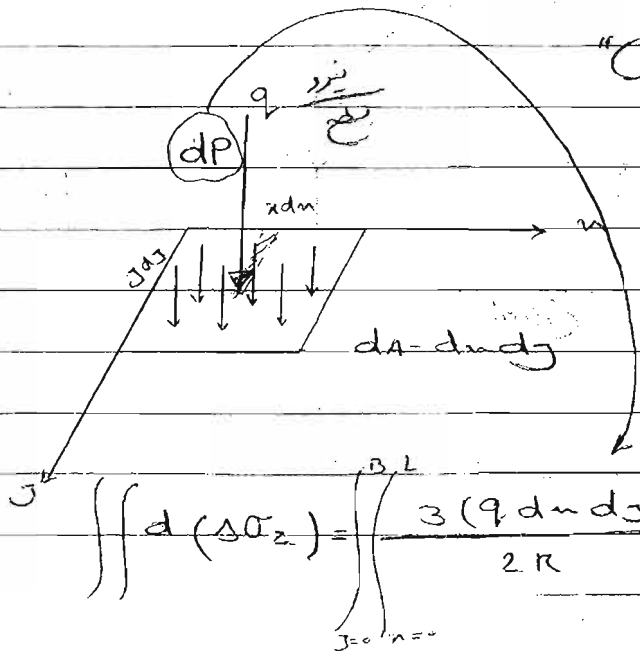 q نیرو / سطح
dP
x dx
y dy
x
dA = dx dy
y
∫∫ d(Δσz) = ∫ y=0 B ∫ x=0 L 3(q dx dy / 2π